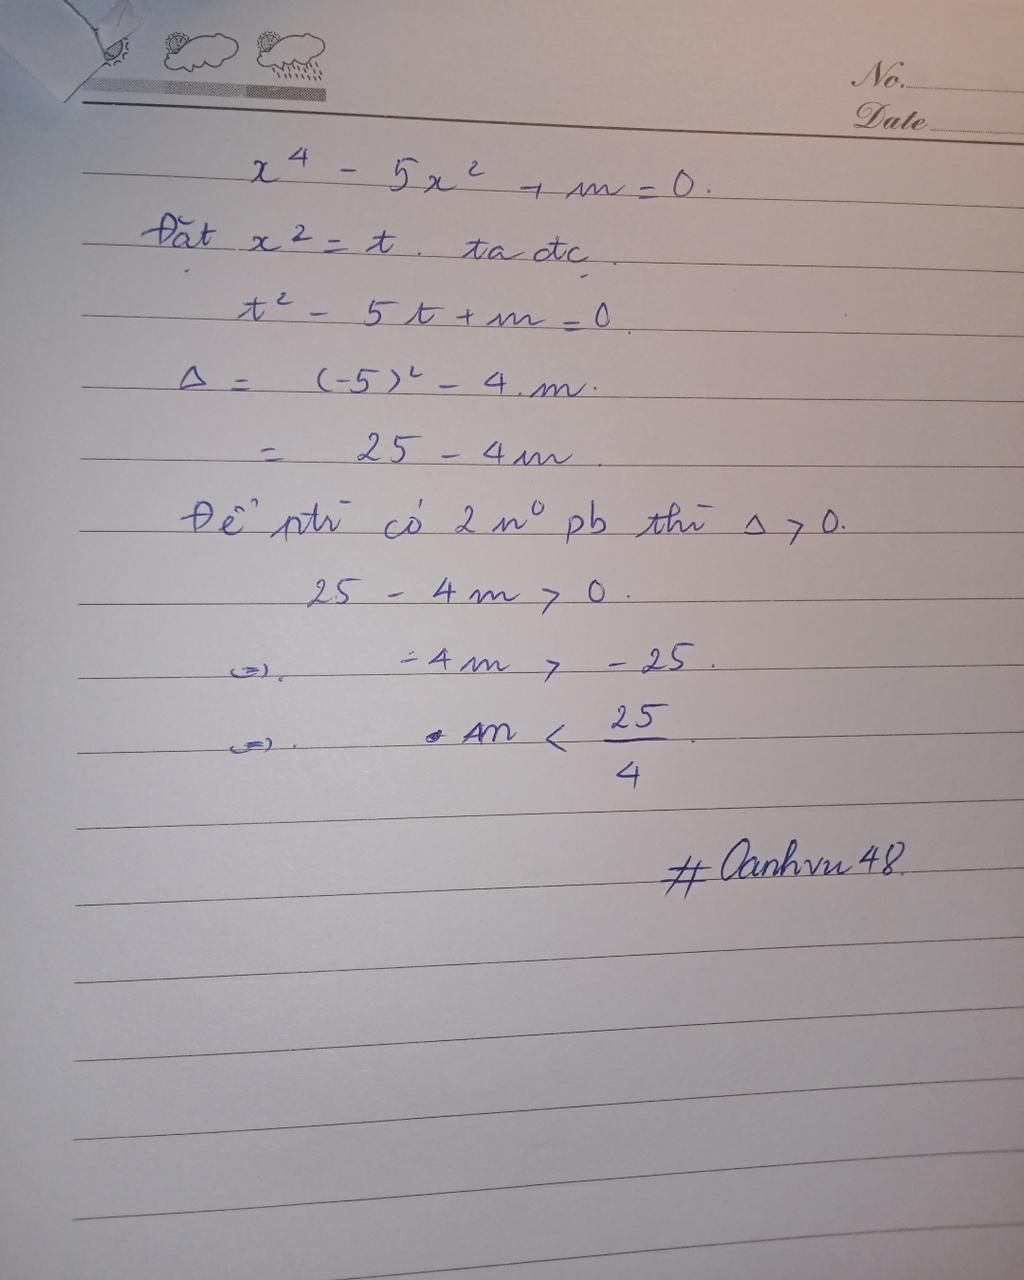 No.
Date
x⁴ - 5x² + m = 0.
Đặt x² = t. ta đc
t² - 5t + m = 0.
Δ = (-5)² - 4.m.
= 25 - 4m.
Để ptr có 2 n⁰ pb thì Δ > 0.
25 - 4m > 0.
(=). -4m > -25.
(=). m < 25/4.
#Oanhvu48.